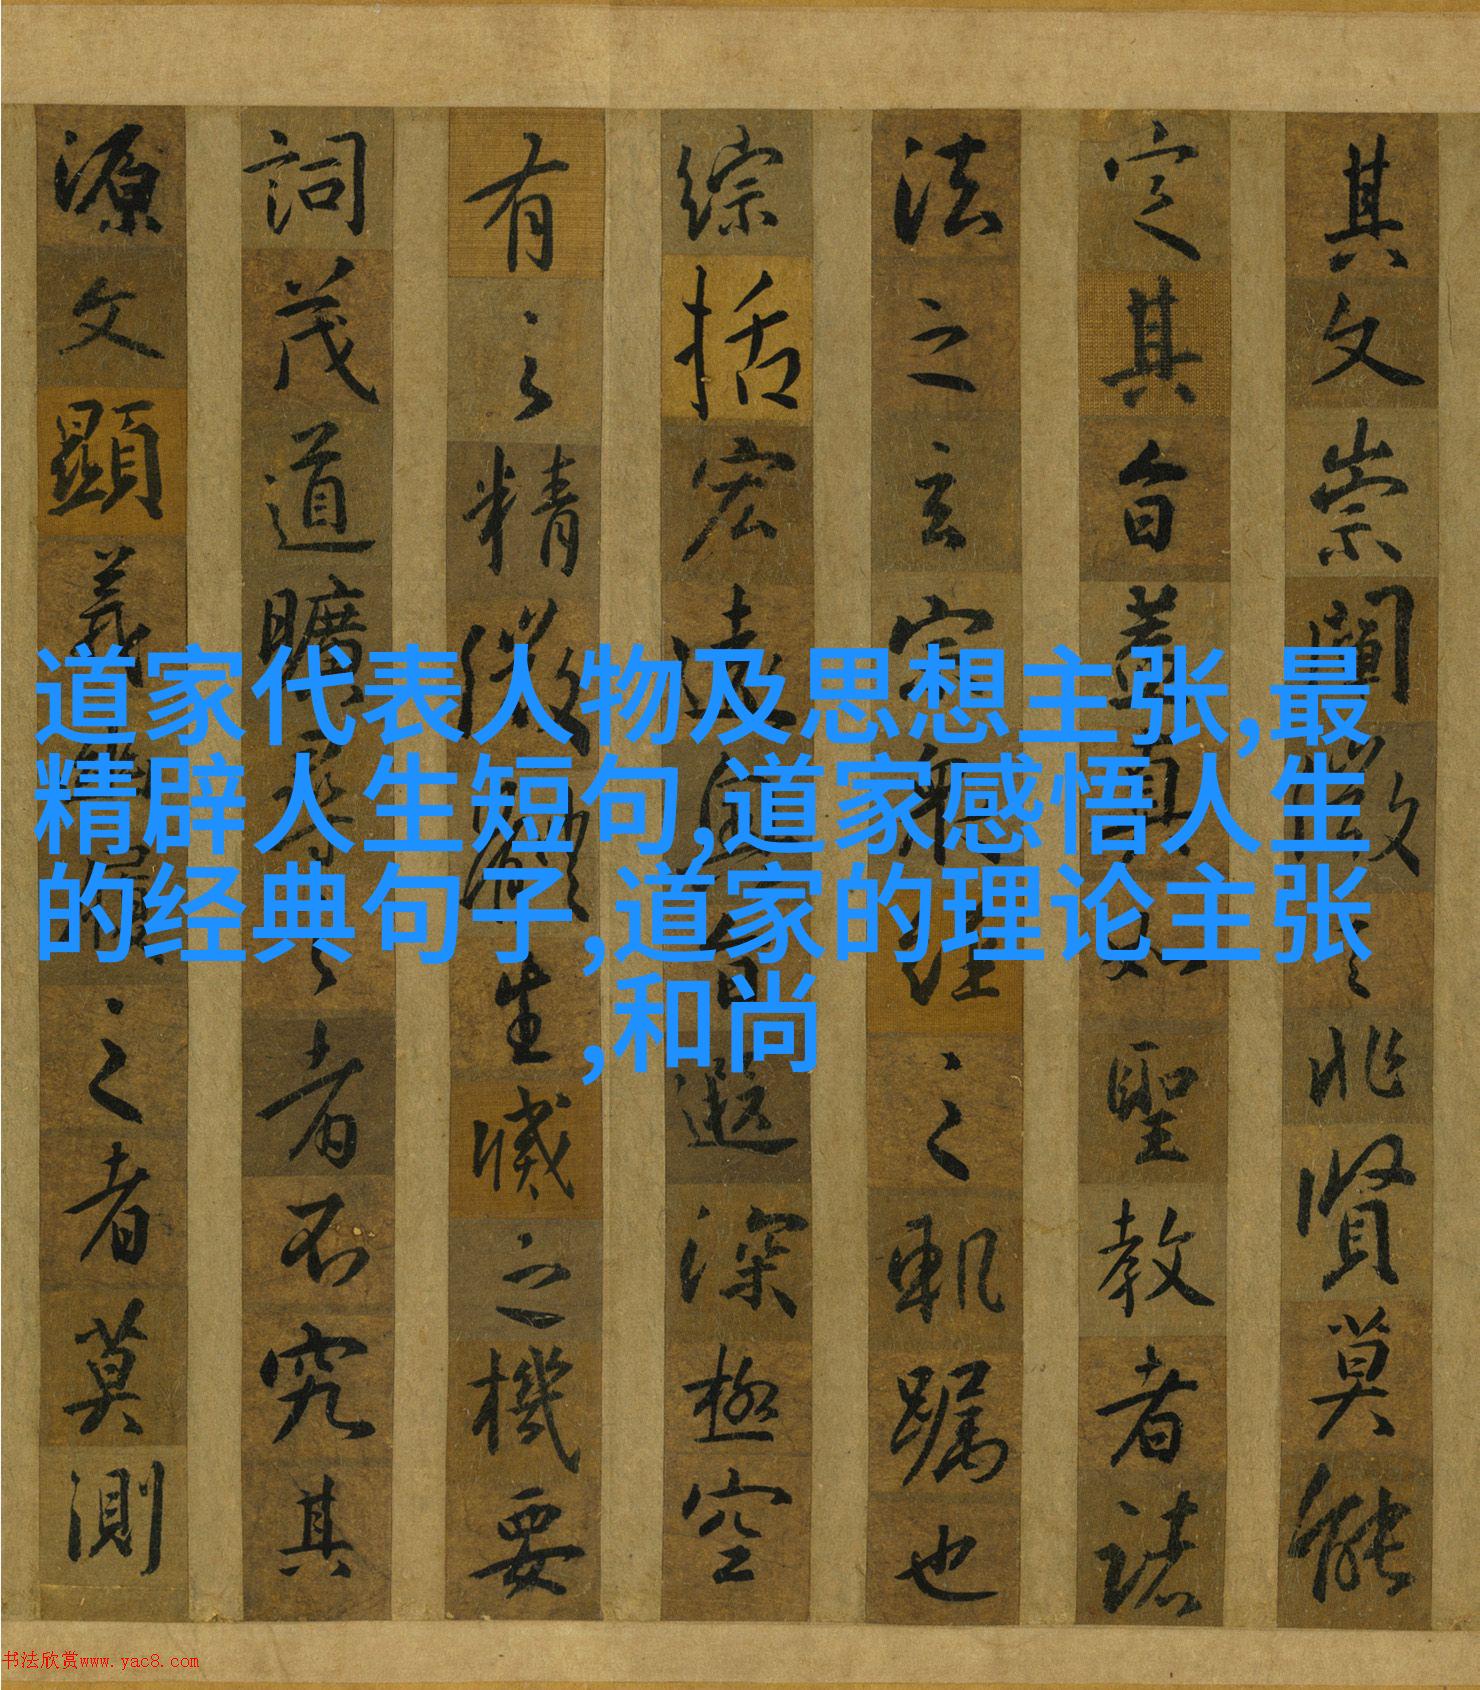 其文崇闡微言非賢莫能
定其旨蓋真如聖教者諸
法之玄宗衆經之軌躅也
綜括宏遠奧旨遐深極空
有之精微體生滅之機要
詞茂道曠尋之者不究其
源文顯義幽履之者莫測
道家代表人物及思想主张,最
精辟人生短句,道家感悟人生
的经典句子,道家的理论主张
,和尚
书法欣赏www.yac8.com